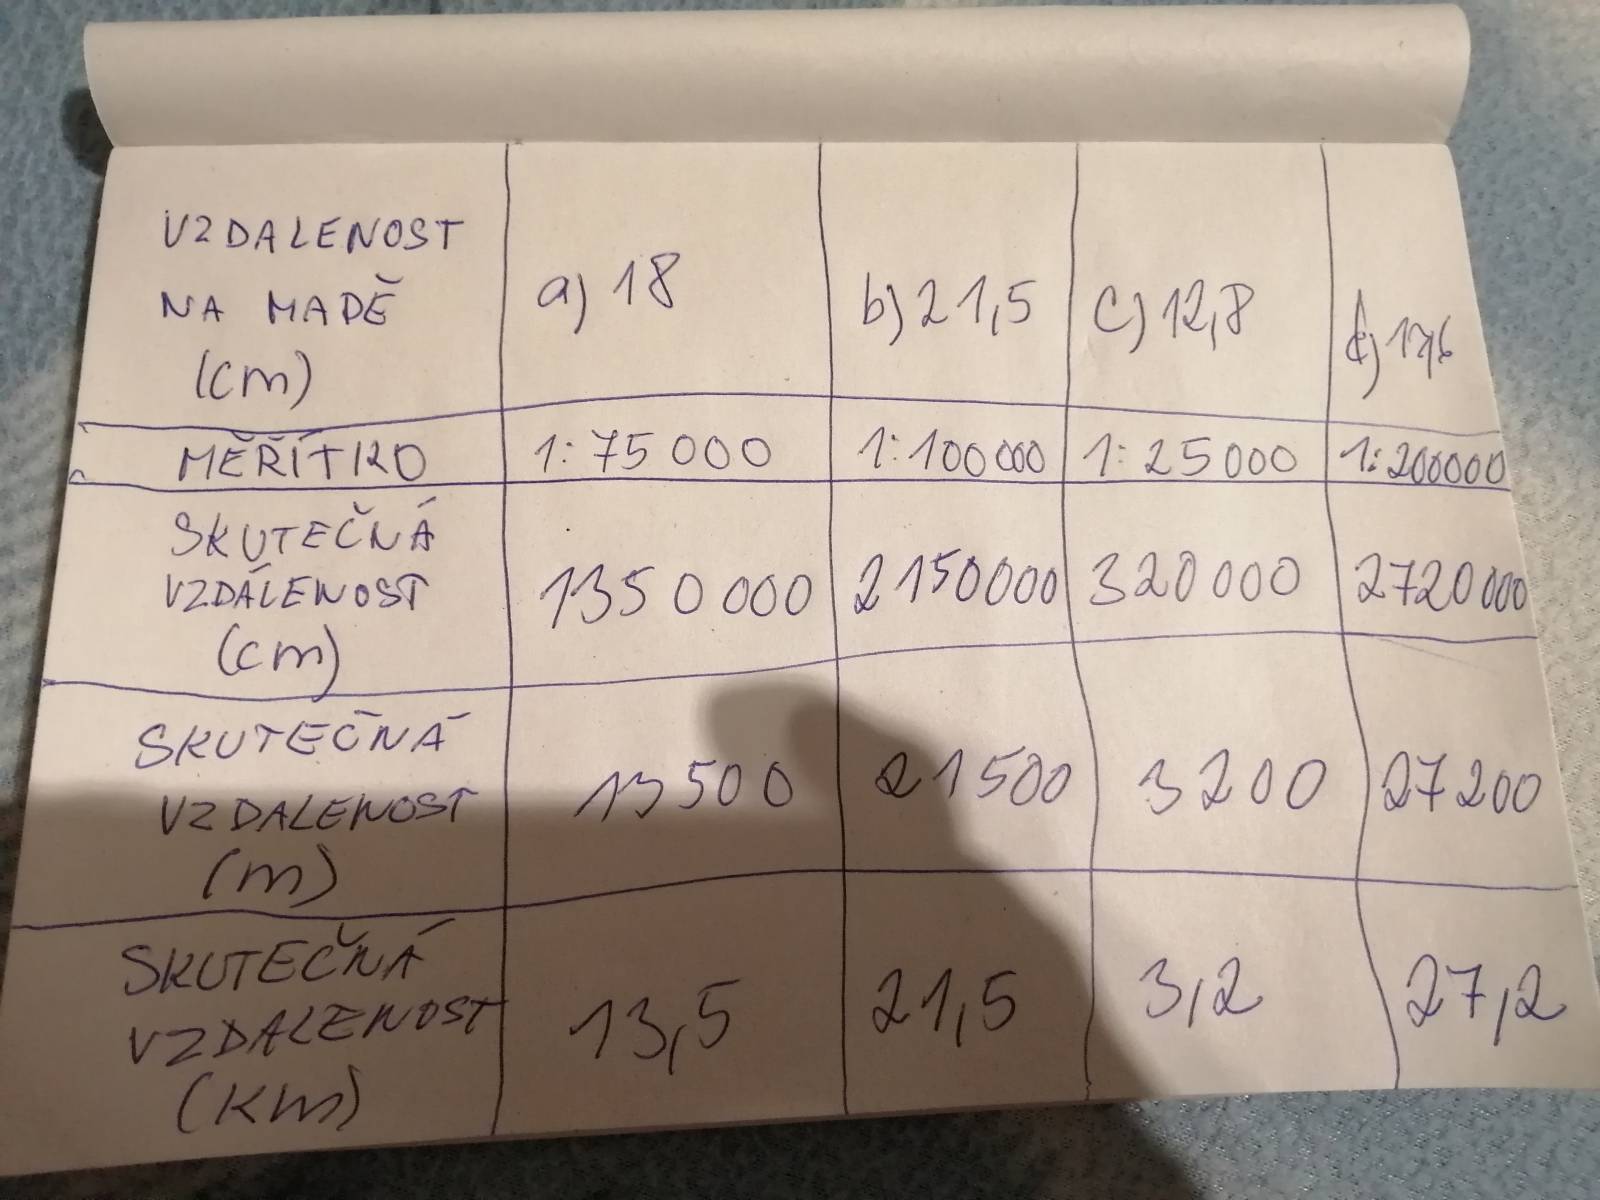 VZDALENOST
NA MADĚ
(cm)
a) 18
b) 21,5
c) 12,8
MĚŘÍTKO
1: 75 000
1: 100 000
1: 25 000
1: 200000
SKUTEČNÁ
VZDÁLENOST
(cm)
1350 000
2150000
320 000
2720 000
SKUTEČNÁ
VZDALENOST
(m)
13 500
21500
3200
27200
SKUTEČNÁ
VZDALENOST
(km)
13,5
21,5
3,2
27,2